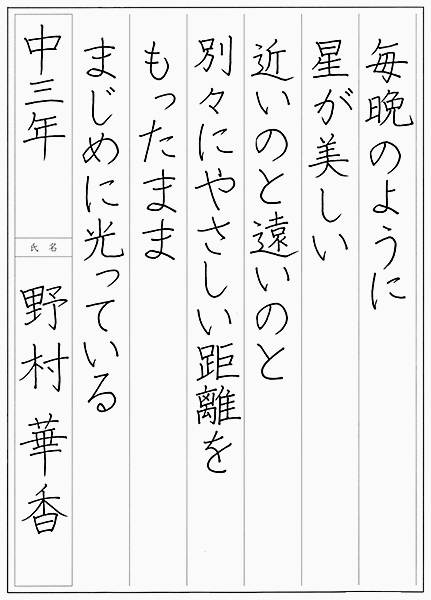 毎晩のように
星が美しい
近いのと遠いのと
別々にやさしい距離を
もったまま
まじめに光っている
中三年
氏名
野村華香